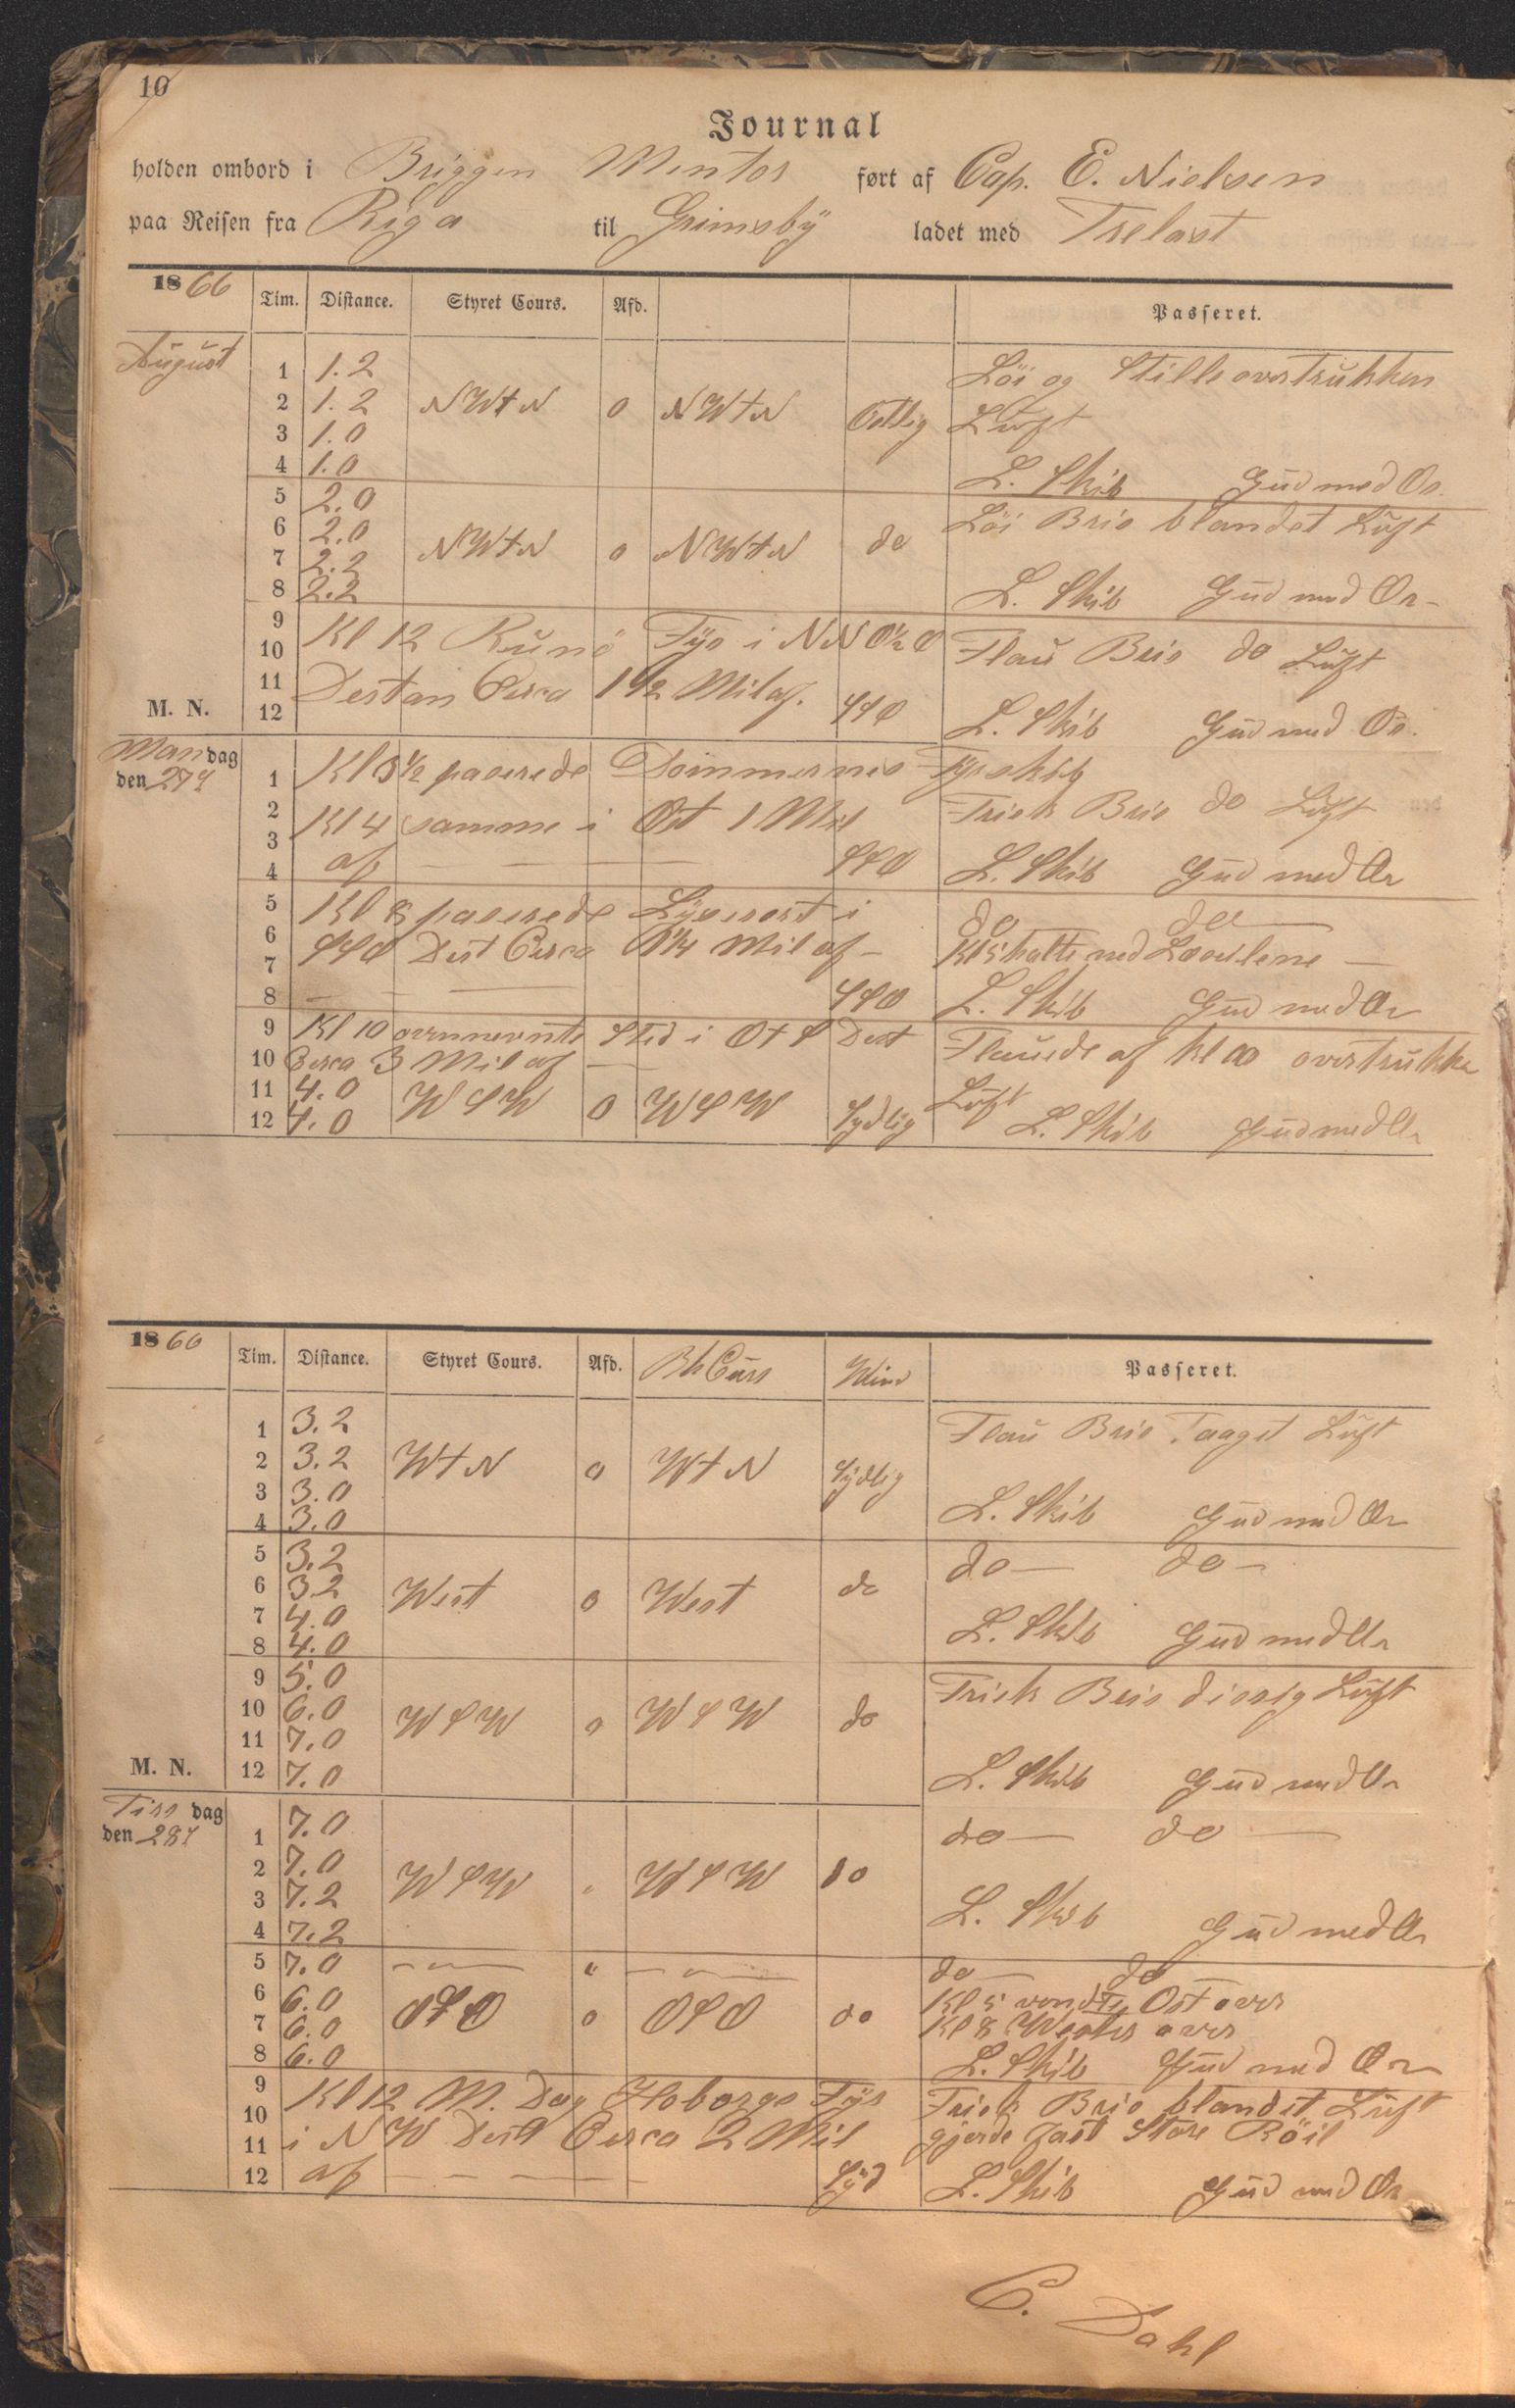 10
Journal
holden ombord i Briggen Mentor ført af Cap. E. Nielsen
paa Reisen fra Riga til Grimsby ladet med Trelast
1866 Tim. Distance. Styret Cours. Afd. Passeret.
August
1 1.2 Löi og Stille overtrukken
2 1.2 NWtN 0 NWtN Ostlig Luft
3 1.0
4 1.0 L. Skib Gud med Os
5 2.0 Löi Bris blandet Luft
6 2.0
7 2.2 NWtN 0 NWtN do
8 2.2 L. Skib Gud med Os
9
10 Kl 12 Runö Fyr i NNO½O Flau Bris do Luft
11 Destan Circa 1½ Mil af.
M. N. 12 SSO L. Skib Gud med Os.
Mandag
den 27
1 Kl 3½ paserede Dommernes Fyrskib
2 Frisk Bris do Luft
3 Kl 4 samme i Ost 1 Mil
4 af SSO L. Skib Gud med Os
5 Kl 8 paserede Lyserort i do do
6 SSO Dest Circa 1¼ Mil af
7 Kl 5 hatte ned
8 SSO L. Skib Gud med Os
9 Kl 10 Sted i OtS Dest Flauede af Kl 10 overtrukke
10 Circa 3 Mil af
11 4.0 WSW 0 WSW Sydlig Luft
12 4.0 L. Skib Gud med Os
1866 Tim. Distance. Styret Cours. Afd. Bh Curs Wind Passeret.
1 3.2 Flau Bris Taaget Luft
2 3.2 WtN 0 WtN Sydlig
3 3.0
4 3.0 L. Skib Gud med Os
5 3.2 do do
6 3.2 West 0 West do
7 4.0
8 4.0 L. Skib Gud med Os
9 5.0 Frisk Bris dissig Luft
10 6.0 WSW 0 WSW do
11 7.0
M. N. 12 7.0 L. Skib Gud med Os
Tirsdag
den 28
1 7.0 do do
2 7.0 WSW " WSW do
3 7.2
4 7.2 L. Skib Gud med Os
5 7.0 " " " do do
6 6.0 Kl 5 vendte Ost over
7 6.0 OSO 0 OSO do Kl 8 Wester over
8 6.0 L. Skib Gud med Os
9 Kl 12 M. Dag Hoborgs Fyr Frisk Bris blandet Luft
10
11 i NW Dest Circa 2 Mil gjorde fast Store Röil
12 af Syd L. Skib Gud med Os
C. Dahl